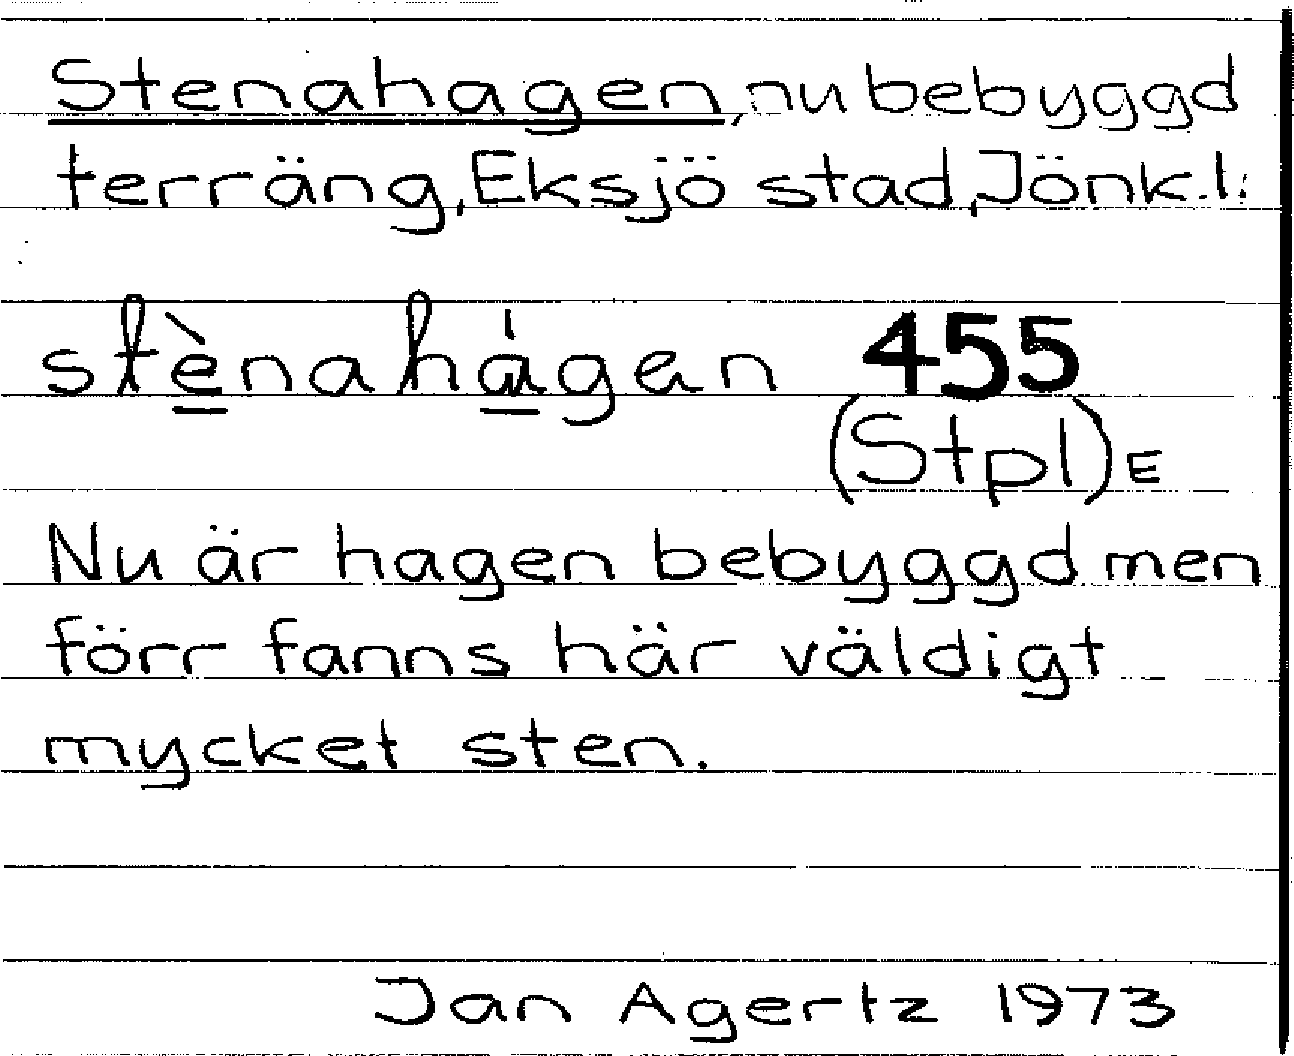 Stenahagen, nu bebyggd
terräng, Eksjö stad, Jönk.l.
stènahágen 455
(Stpl)E
Nu är hagen bebyggd men
förr fanns här väldigt
mycket sten.
Jan Agertz 1973